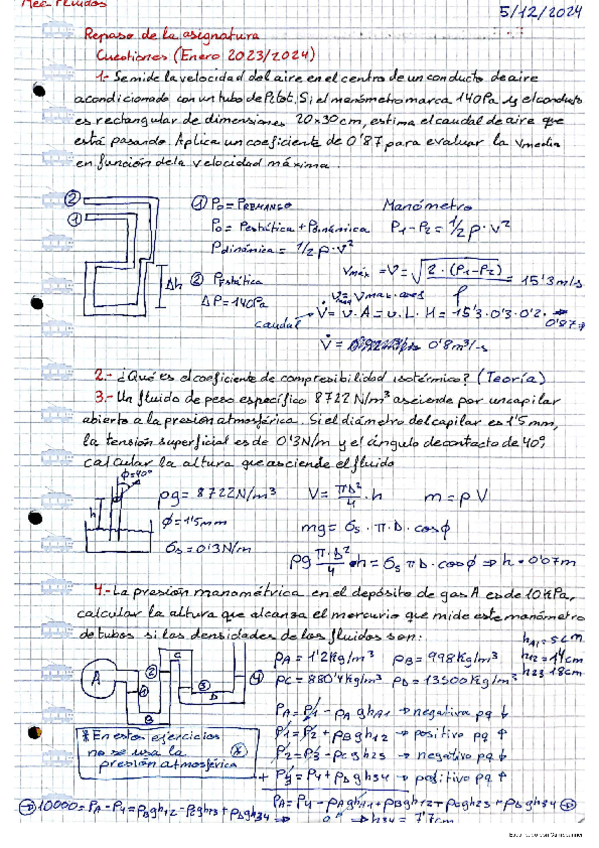 Mec. Fluidos
5/12/2024
Repaso de la asignatura
Cuestiones (Enero 2023/2024)
1.- Se mide la velocidad del aire en el centro de un conducto de aire
acondicionado con un tubo de Pitot. Si el manómetro marca 140Pa y el conducto
es rectangular de dimensiones 20x30cm, estima el caudal de aire que
está pasando. Aplica un coeficiente de 0'87 para evaluar la Vmedia
en función de la velocidad máxima.
② ①
Δh
① Po = PREMANSO
Po = Pestática + Pdinámica
Pdinámica = 1/2 ρ·v²
② Pestática
ΔP = 140Pa
Manómetro
P1-P2 = 1/2 ρ·v²
Vmáx = V = √(2·(P1-P2)/ρ) = 15'3m/s
caudal
V̇ = v·A = v·L·H = 15'3·0'3·0'2·0'87
V̇ = 0'8m³/s
2.- ¿Qué es el coeficiente de compresibilidad isotérmico? (Teoría)
3.- Un fluido de peso específico 8722N/m³ asciende por un capilar
abierto a la presión atmosférica. Si el diámetro del capilar es 1'5mm,
la tensión superficial es de 0'3N/m y el ángulo de contacto de 40°,
calcular la altura que asciende el fluido
φ=40°
h
ρg = 8722N/m³
φ = 1'5mm
σs = 0'3N/m
V = πD²/4 ·h
m = ρV
mg = σs·π·D·cosφ
ρg π·D²/4 ·h = σs πD·cosφ ⇒ h = 0'07m
4.- La presión manométrica en el depósito de gas A es de 10kPa,
calcular la altura que alcanza el mercurio que mide este manómetro
de tubos si las densidades de los fluidos son:
hA1 = 5cm
h12 = 14cm
h23 = 18cm
A
B
C
D
① ② ③ ④
ρA = 1'2kg/m³ ρB = 998kg/m³
ρC = 880'4kg/m³ ρD = 13500kg/m³
PA = P1 - ρAghA1 → negativa pq ↓
P1 = P2 + ρBgh12 → positivo pq ↑
P2 = P3 - ρCgh23 → negativo pq ↓
+ P3 = P4 + ρDgh34 → positivo pq ↑
* En estos ejercicios
no se usa la
presión atmosférica
PA = P4 - ρAghA1 + ρBgh12 - ρCgh23 + ρDgh34
10000 = PA - P4 = ρBgh12 - ρCgh23 + ρDgh34 ⇒
h34 = 7'7cm